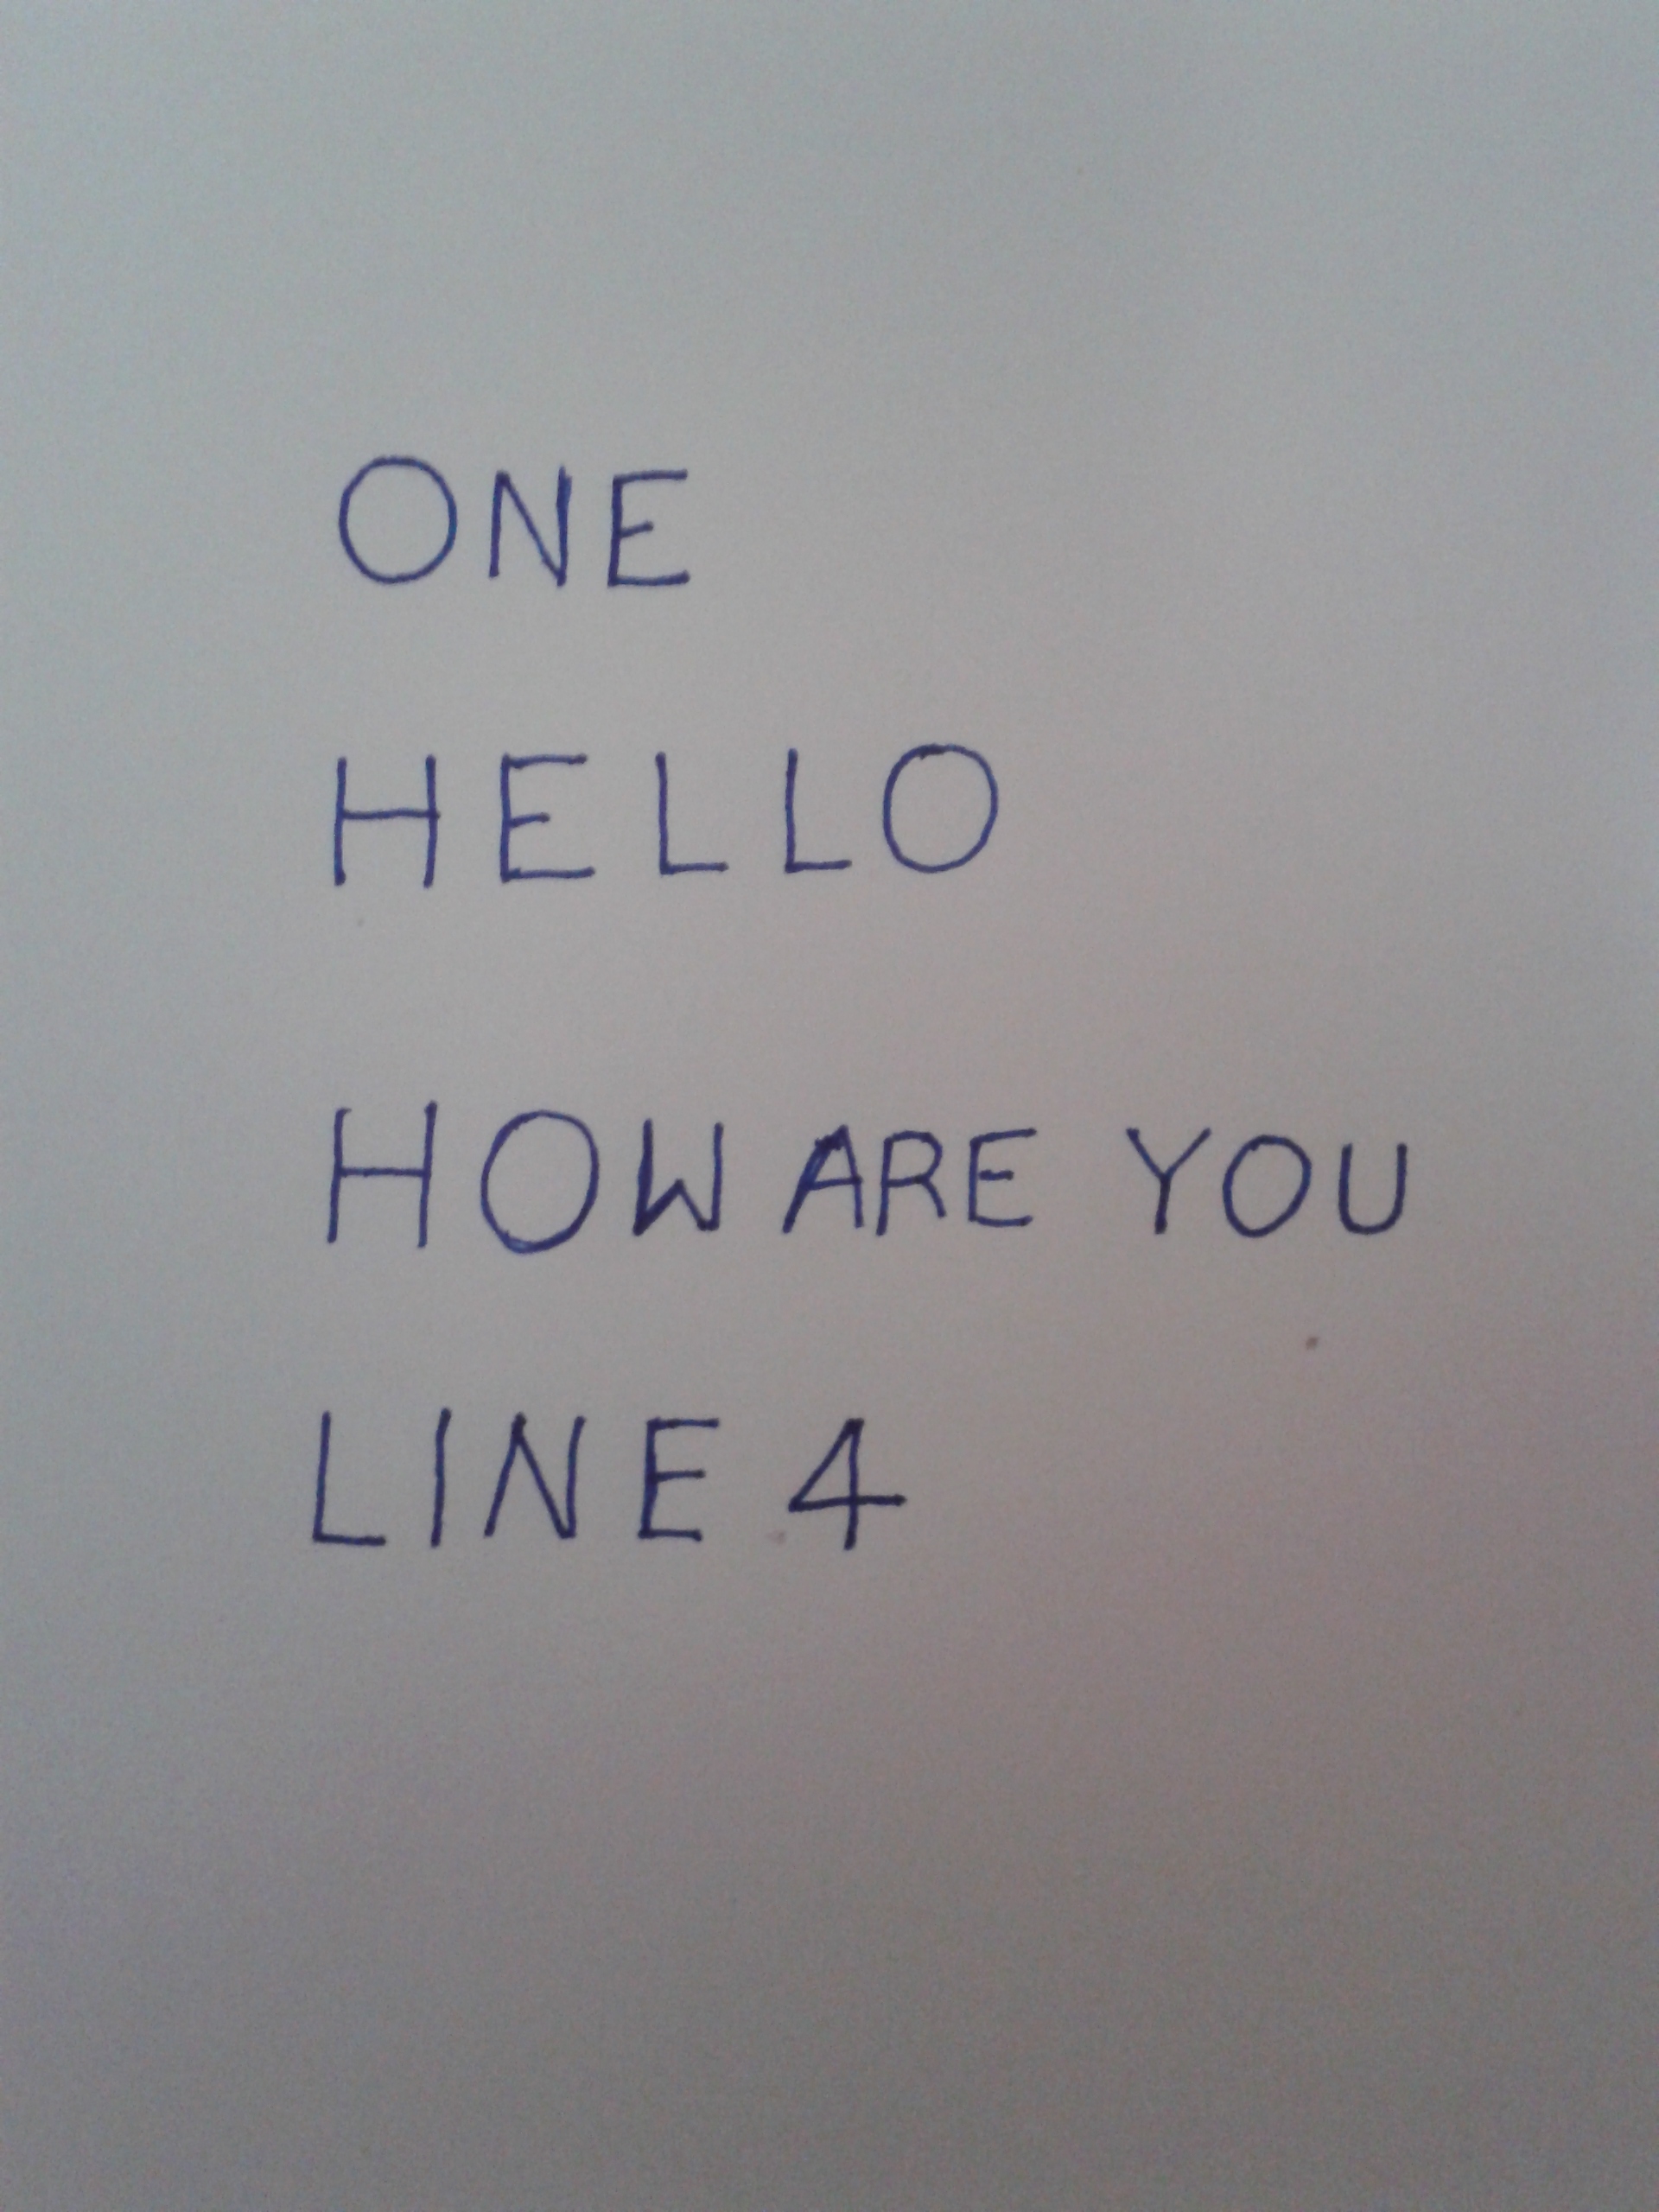 ONE
HELLO
HOW ARE YOU
LINE 4